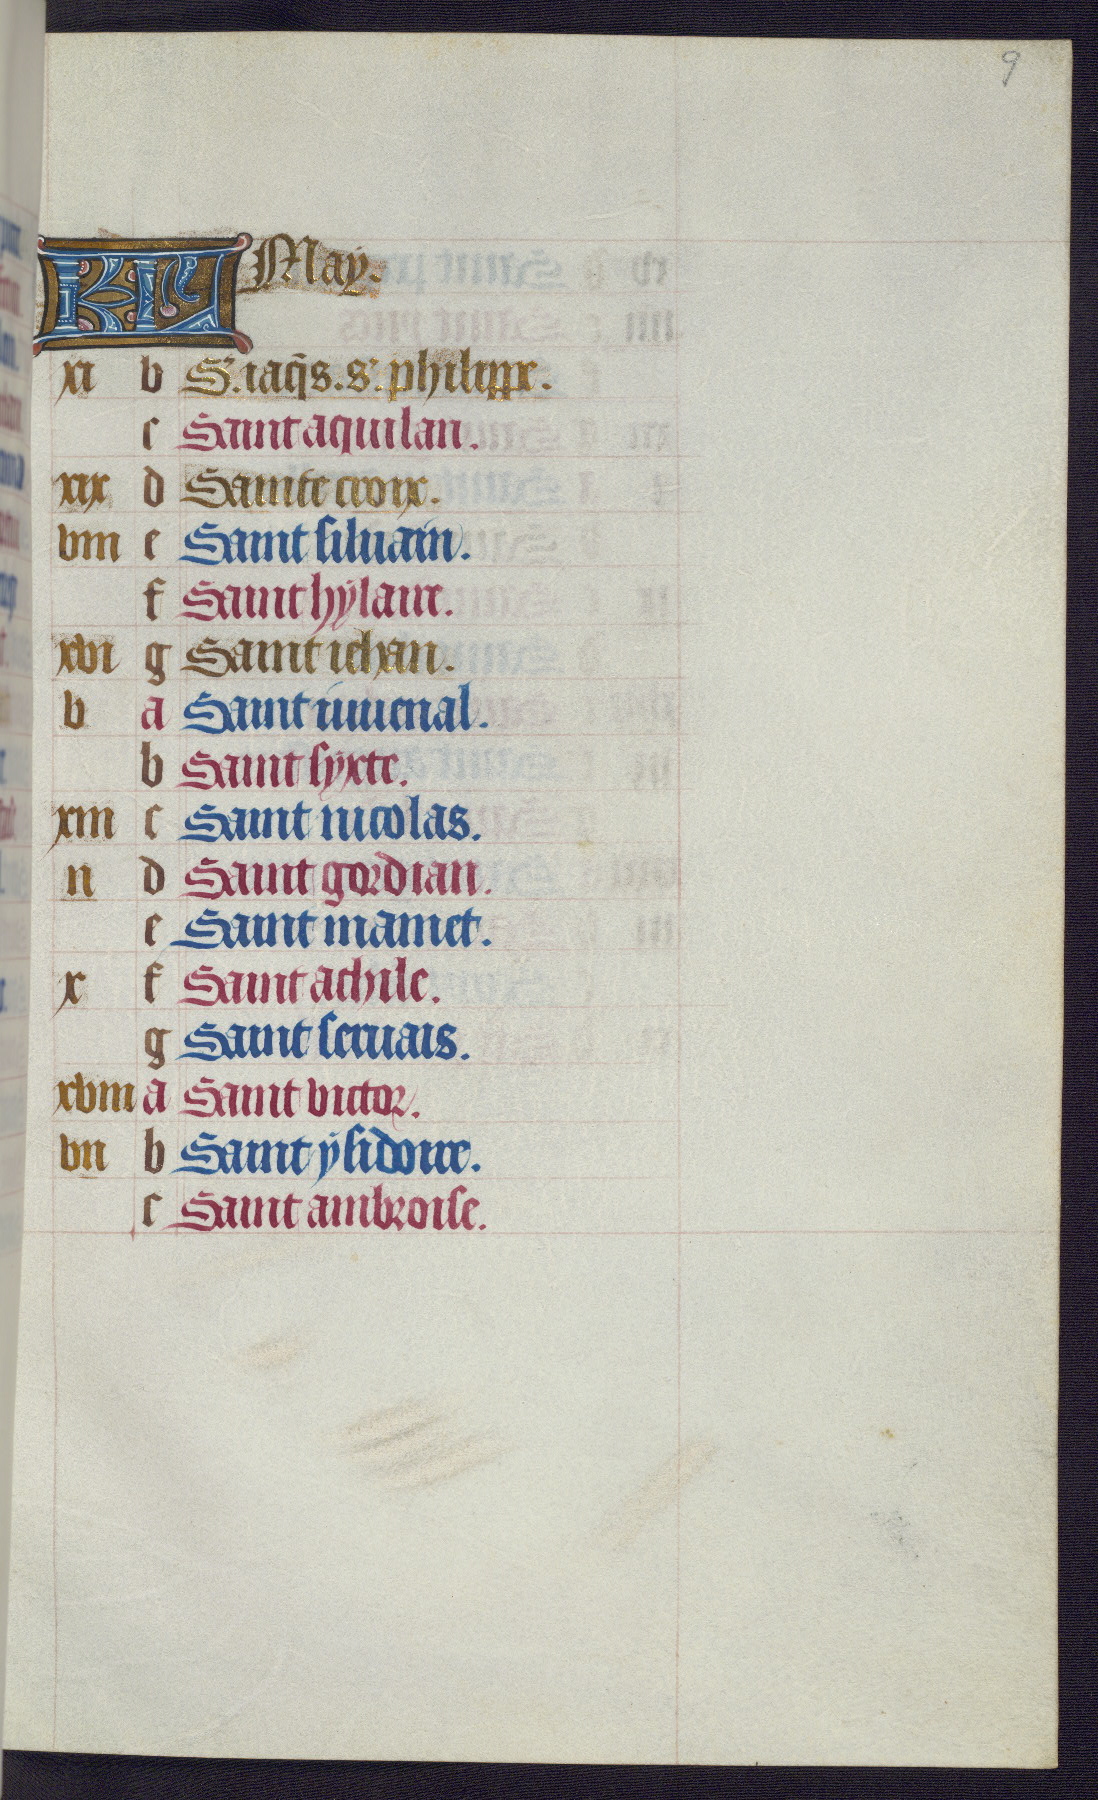 9
KL May.
xi b S. iaq̄s. s. philippe.
c Saint aquilan.
xix d Sainte croix.
viii e Saint siluain.
f Saint hÿlaire.
xvi g Saint iehan.
v a Saint iuuenal.
b Saint syxte.
xiii c Saint nicolas.
ii d Saint gordian.
e Saint mamet.
x f Saint achile.
g Saint seruais.
xviii a Saint victor.
vii b Saint ÿsidoire.
c Saint ambroise.